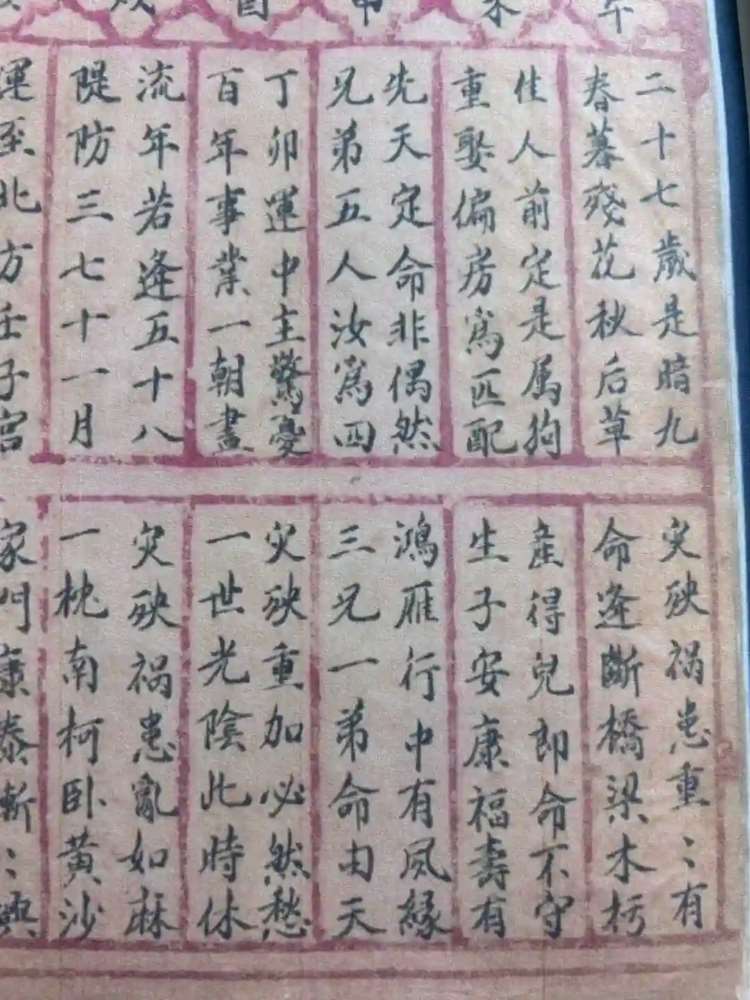 午
未
申
酉
戌
二十七歲是暗九
春暮殘花秋后草
佳人前定是属狗
重娶偏房爲匹配
先天定命非偶然
兄弟五人汝爲四
丁卯運中主驚憂
百年事業一朝盡
流年若逢五十八
隄防三七十一月
運至北方壬子宮
灾殃禍患重〻有
命逢斷橋梁木朽
產得兒郎命不守
生子安康福壽有
鴻雁行中有夙緣
三兄一弟命由天
灾殃重加必然愁
一世光陰此時休
灾殃禍患亂如麻
一枕南柯卧黃沙
家門康泰漸〻興